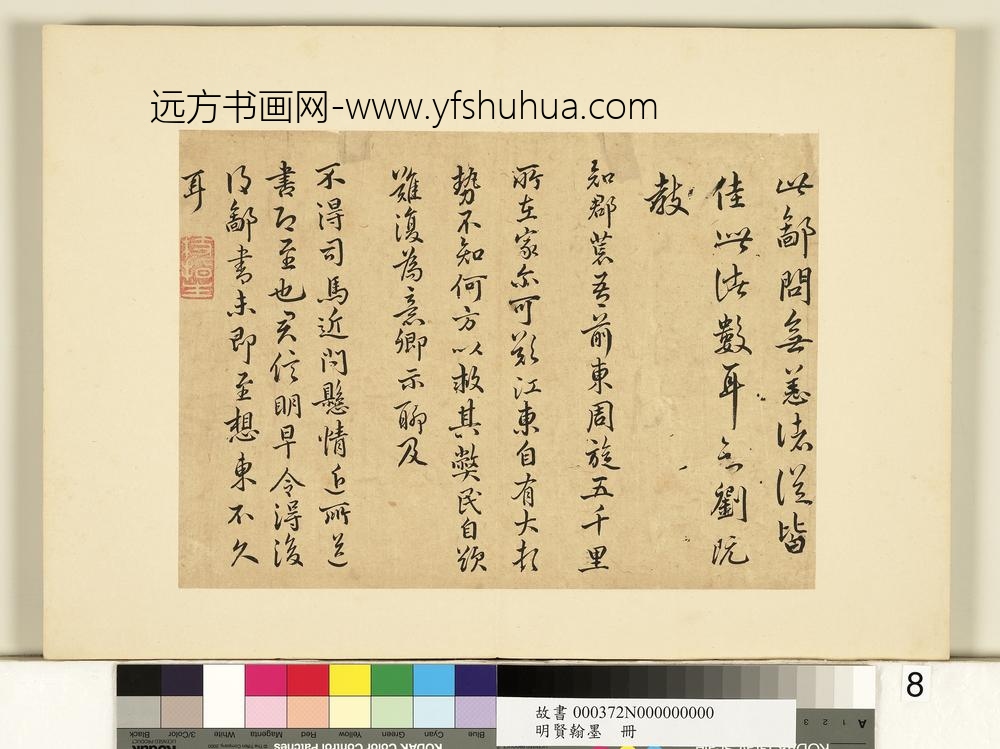 远方书画网-www.yfshuhua.com
此鄙問無恙諸從皆
佳此数耳劉阮
教
知郡荒吾前東周旋五千里
所在家尔可歎江東自有大頓
勢不知何方以救其弊民自欲
難復為意卿示聊及
不得司馬近問懸情近所送
書即至也君信明早令得後
得鄙書未即至想東不久
耳
8
故書 000372N000000000
明賢翰墨 冊
Black
3/Color
White
Magenta
Red
Yellow
Green
Cyan
Blue
KODAK Color Control Patches
Kodak
A 1 2 3